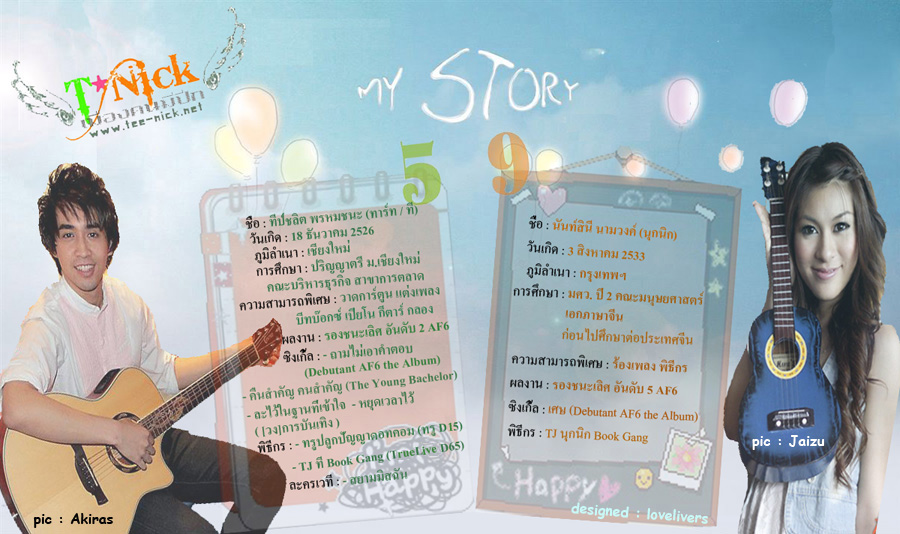 T*Nick
เมืองคนมีปีก
www.tee-nick.net
MY STORY
5
9
ชื่อ : ทีปชลิต พรหมชนะ (ทาร์ท / ที)
วันเกิด : 18 ธันวาคม 2526
ภูมิลำเนา : เชียงใหม่
การศึกษา : ปริญญาตรี ม.เชียงใหม่
คณะบริหารธุรกิจ สาขาการตลาด
ความสามารถพิเศษ : วาดการ์ตูน แต่งเพลง
บีทบ๊อกซ์ เปียโน กีตาร์ กลอง
ผลงาน : รองชนะเลิศ อันดับ 2 AF6
ซิงเกิ้ล : - ถามไม่เอาคำตอบ
(Debutant AF6 the Album)
- คืนสำคัญ คนสำคัญ (The Young Bachelor)
- ละไว้ในฐานที่เข้าใจ - หยุดเวลาไว้
( [วง]การบันเทิง )
พิธีกร : - ทรูปลูกปัญญาดอทคอม (ทรู D15)
- TJ ที Book Gang (TrueLive D65)
ละครเวที : - สยามมิสฉัน
Happy
ชื่อ : นันท์สินี นามวงค์ (นุกนิก)
วันเกิด : 3 สิงหาคม 2533
ภูมิลำเนา : กรุงเทพฯ
การศึกษา : มศว. ปี 2 คณะมนุษยศาสตร์
เอกภาษาจีน
ก่อนไปศึกษาต่อประเทศจีน
ความสามารถพิเศษ : ร้องเพลง พิธีกร
ผลงาน : รองชนะเลิศ อันดับ 5 AF6
ซิงเกิ้ล : เศษ (Debutant AF6 the Album)
พิธีกร : TJ นุกนิก Book Gang
Happy
designed : lovelivers
pic : Akiras
pic : Jaizu